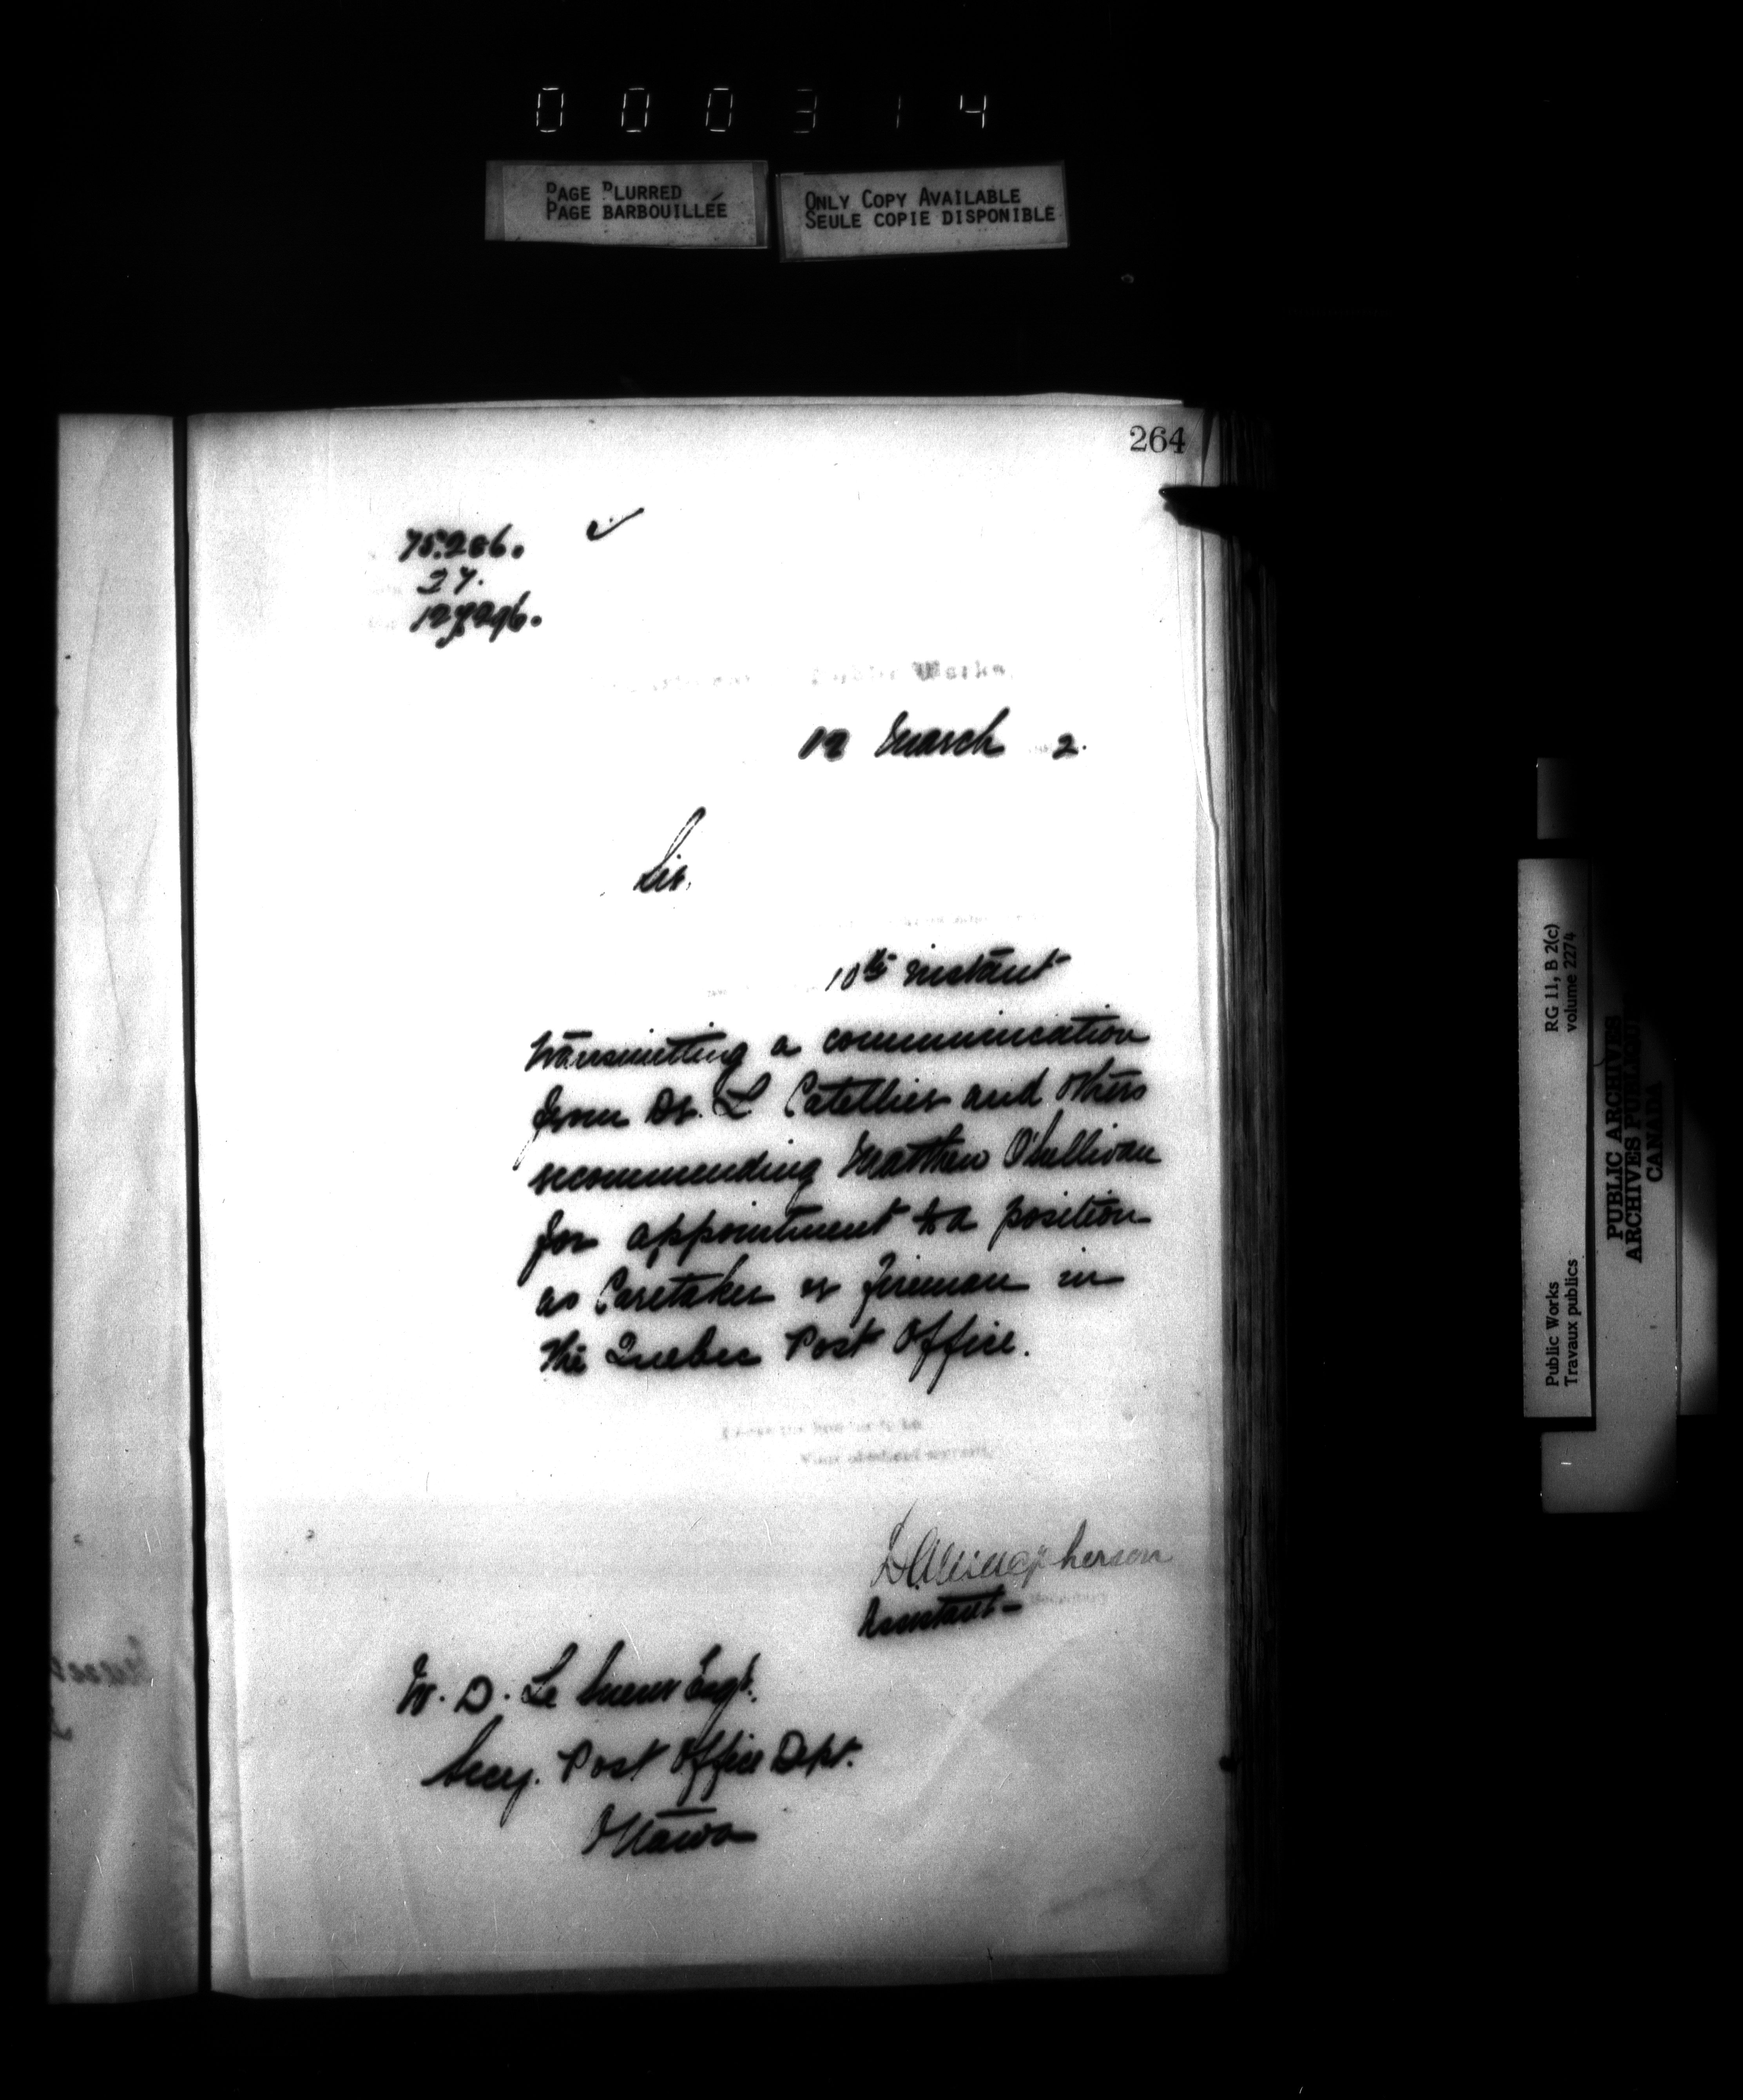 000314
PAGE BLURRED
PAGE BARBOUILLÉE
ONLY COPY AVAILABLE
SEULE COPIE DISPONIBLE
264
75.206.
27.
Public Works
12 March 2.
Sir,
10th instant
transmitting a communication
from Dr. L Catellier and others
recommending Matthew O'Sullivan
for appointment to a position
as Caretaker or fireman in
the Quebec Post Office.
Your obedient servant,
Macpherson
Assistant Secretary
W. D. Le Sueur Esqr.
Secy. Post Office Dept.
Ottawa
RG 11, B 2(c)
volume 2274
Public Works
Travaux publics
PUBLIC ARCHIVES
ARCHIVES PUBLIQUES
CANADA